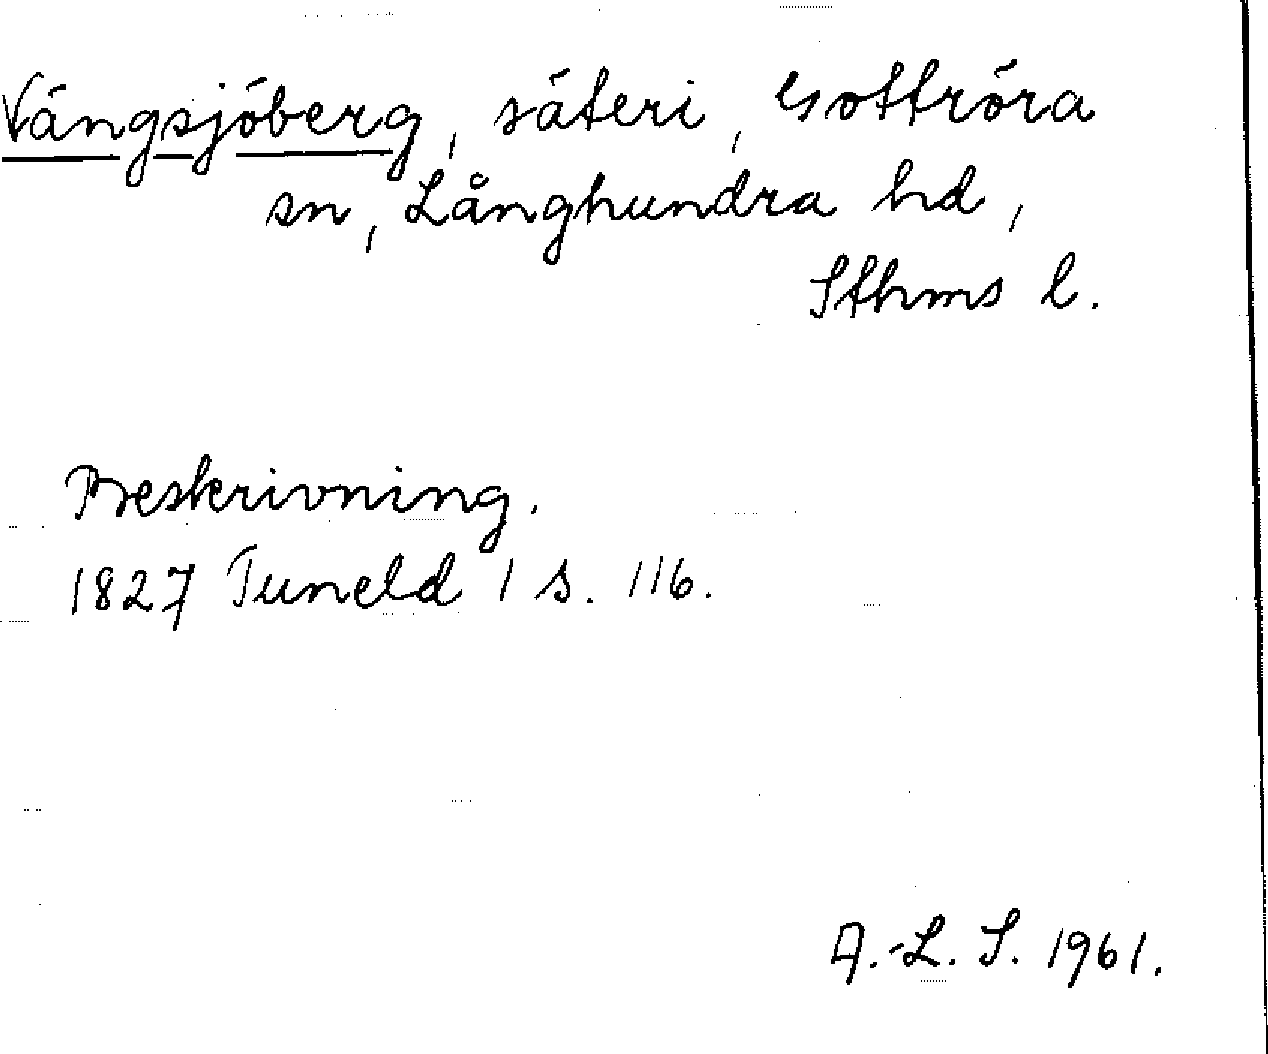 Vängsjöberg, säteri, Gottröra
sn, Långhundra hd,
Sthms l.
Beskrivning.
1827 Tuneld I s. 116.
A.-L. S. 1961.